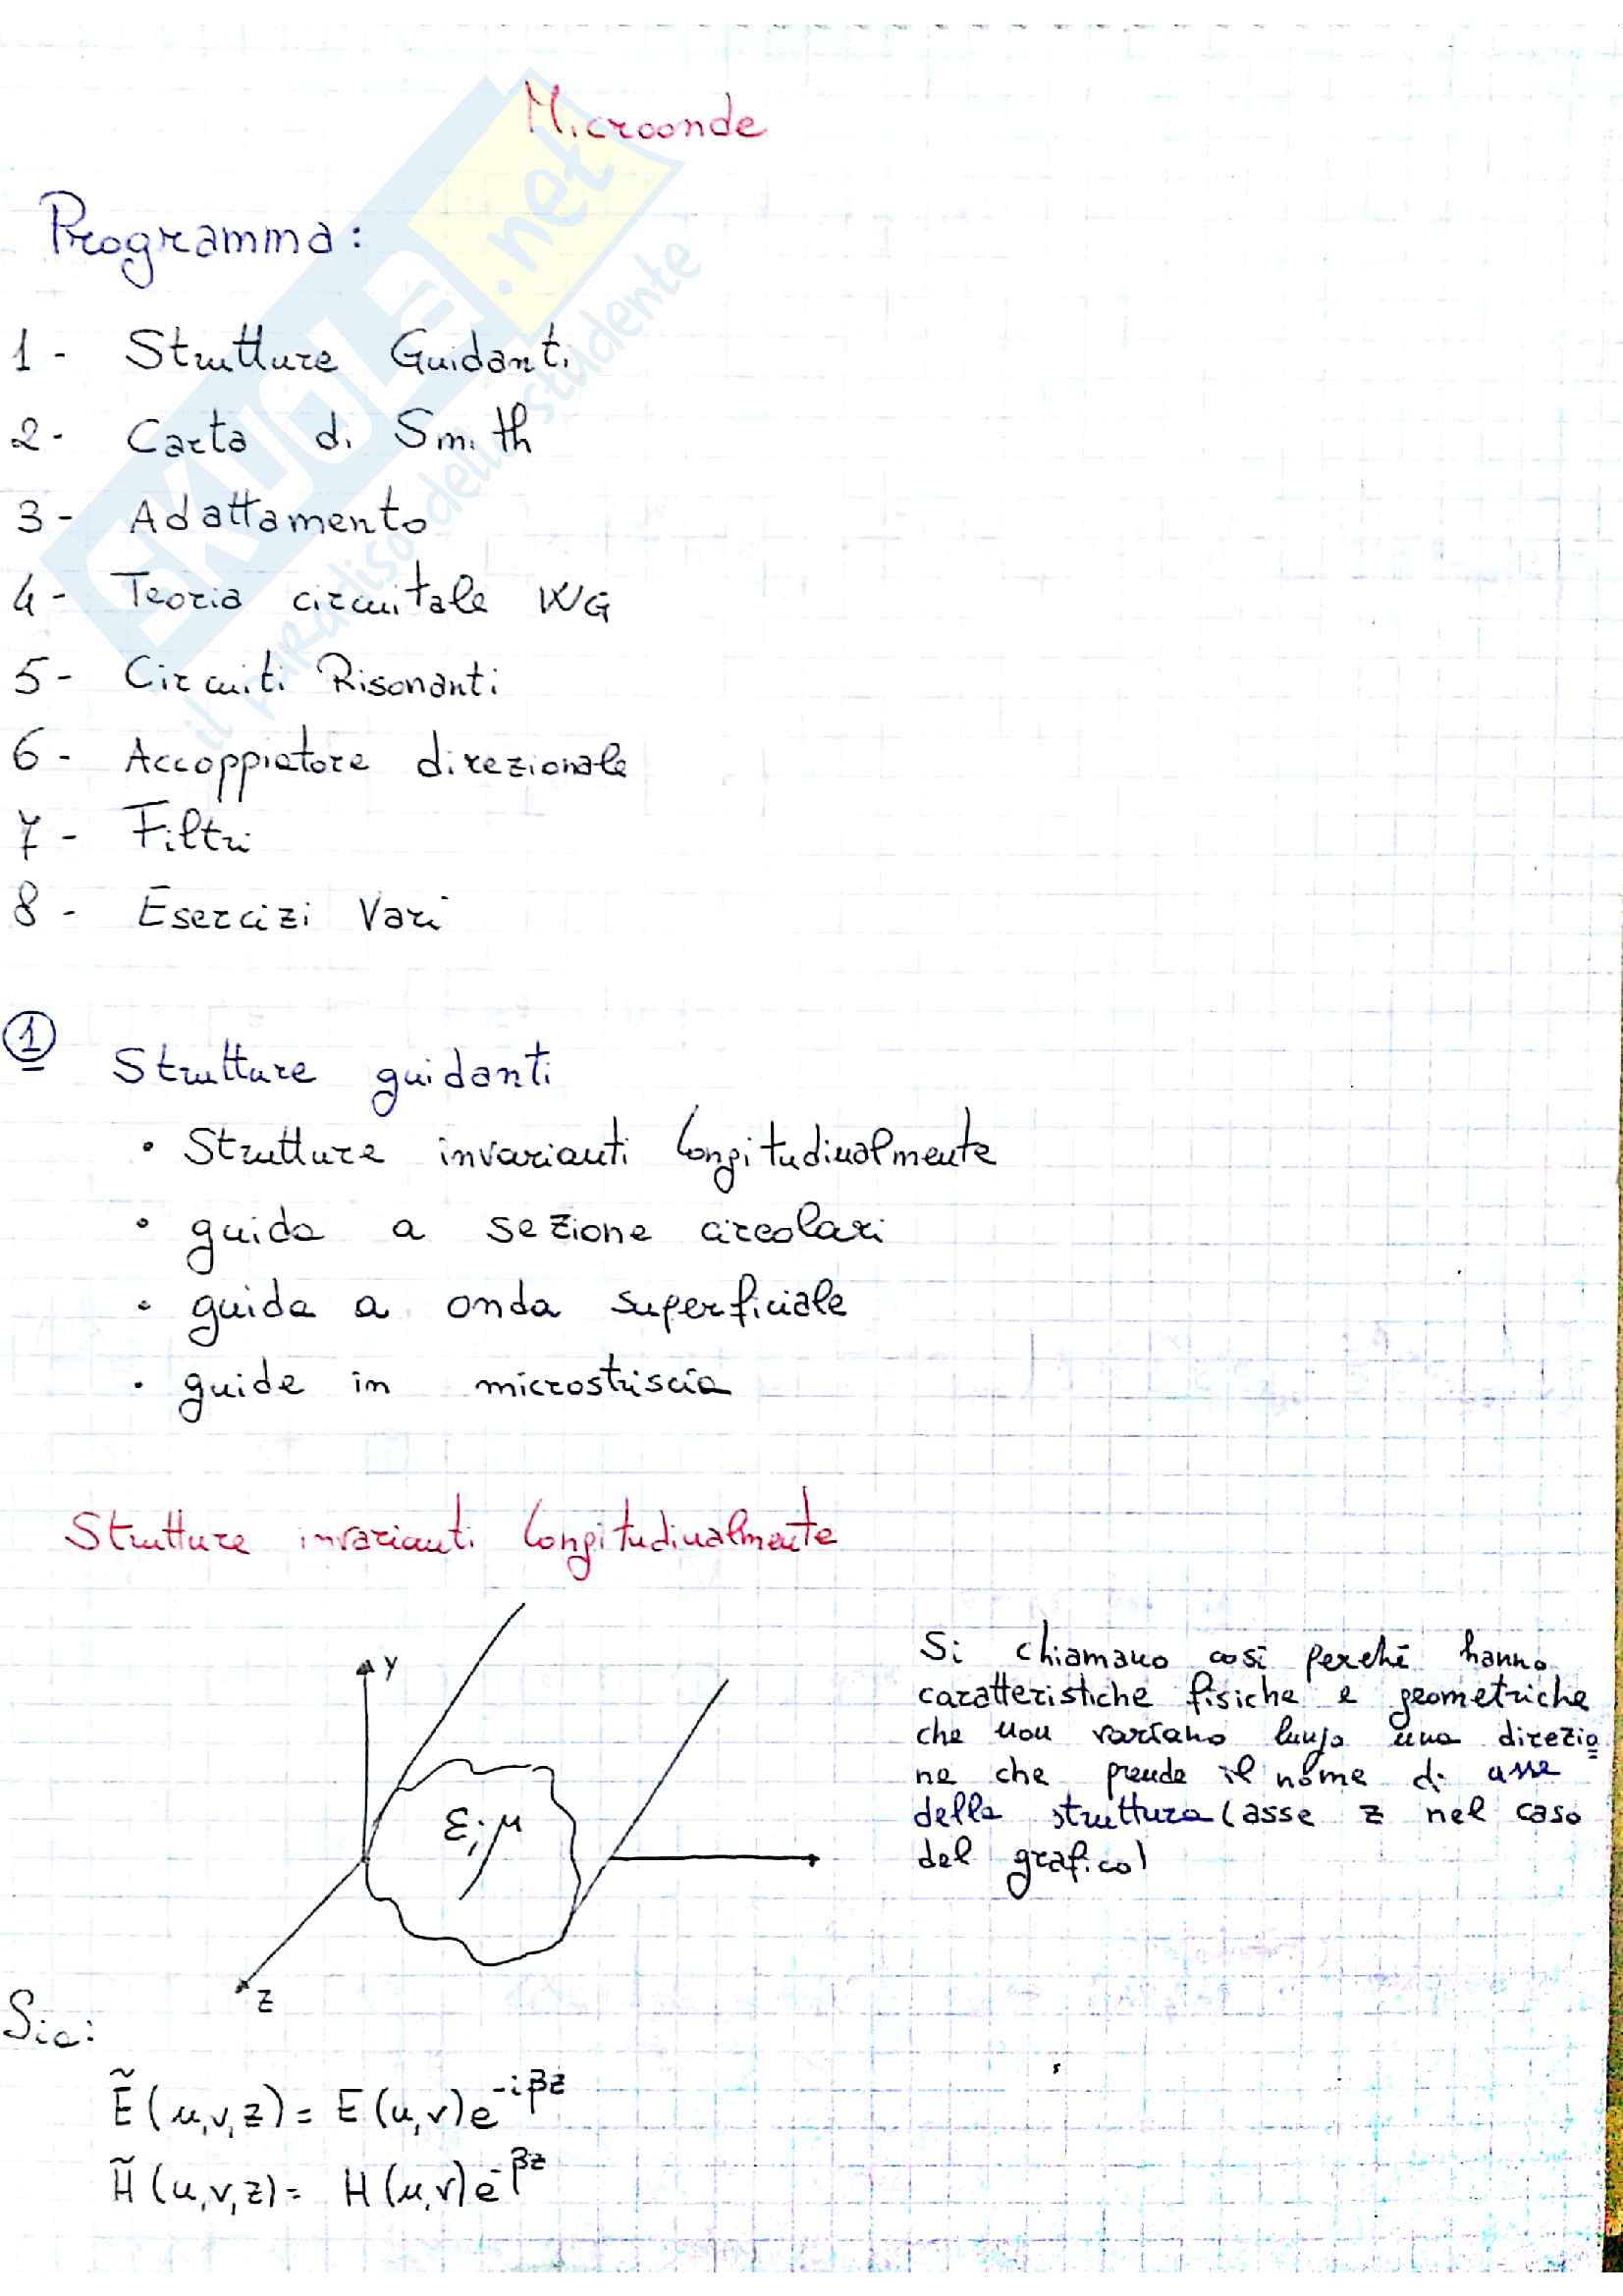 Microonde
Programma:
1- Strutture Guidanti
2- Carta di Smith
3- Adattamento
4- Teoria circuitale WG
5- Circuiti Risonanti
6- Accoppiatore direzionale
7- Filtri
8- Esercizi Vari
1 Strutture guidanti
• Strutture invarianti longitudinalmente
• guida a sezione circolari
• guida a onda superficiale
• guide in microstriscia
Strutture invarianti longitudinalmente
Y
ε, μ
Z
Si chiamano così perché hanno
caratteristiche fisiche e geometriche
che non variano lungo una direzio
ne che prende il nome di asse
della struttura (asse z nel caso
del grafico)
Sia:
Ẽ(u,v,z) = E(u,v)e^-iβz
H̃(u,v,z) = H(u,v)e^-βz
SKUOLA.net
il paradiso dello studente